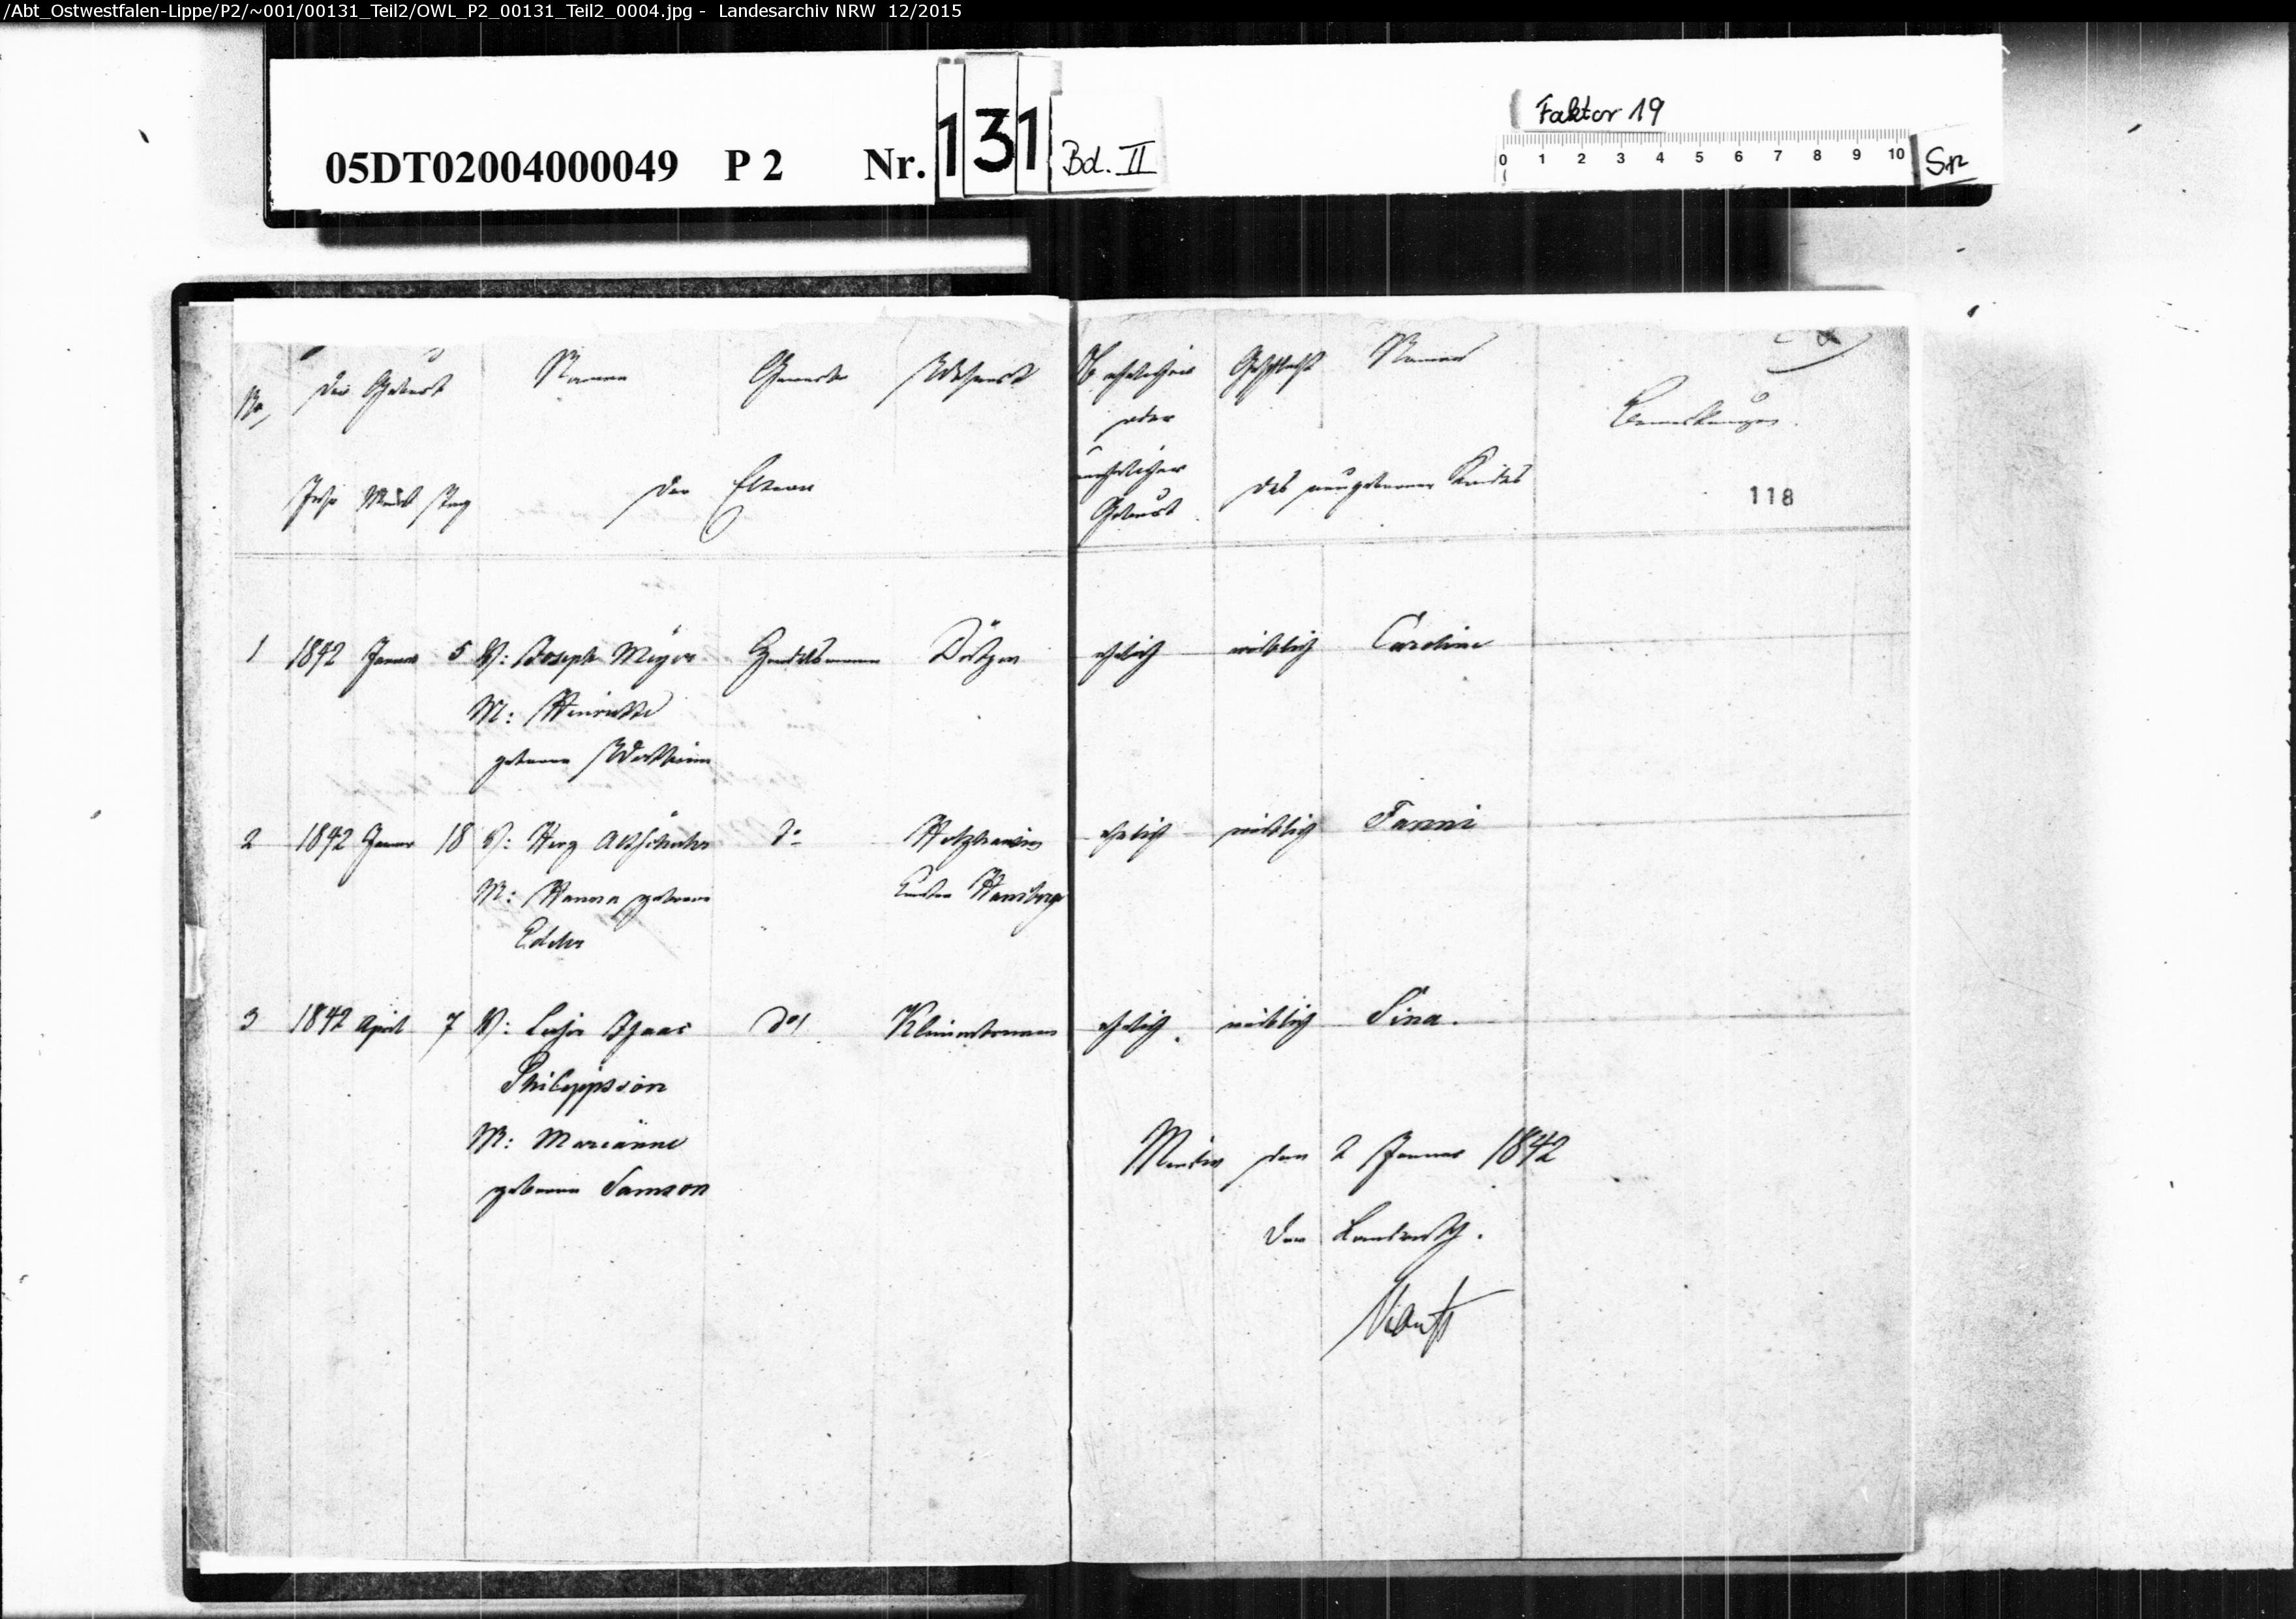 /Abt_Ostwestfalen-Lippe/P2/~001/00131_Teil2/OWL_P2_00131_Teil2_0004.jpg - Landesarchiv NRW 12/2015
Faktor 19
05DT02004000049 P 2 Nr. 131 Bd. II
0 1 2 3 4 5 6 7 8 9 10
No, Der Geburt Namen Gewerbe Wohnort
Jahr Monat Tag der Eltern
Ob ehelicher Geschlecht Namen
oder
unehelicher
Geburt
des neugebornen Kindes
Bemerkungen.
118
1 1842 Januar 5 V: Joseph Meyer Handelsmann Dützen ehelich weiblich Caroline
M: Henriette
geborne Wertheim
2 1842 Januar 18 V: Herz do Holzhausen ehelich weiblich Fanni
M: Hanna geborne
Hausberge
3 1842 April 7 V: do Kleinenbremen ehelich. weiblich Sina.
Philippsson
M: Marianne
geborne Samson
Minden den 2 Januar 1842
Der Landrath.